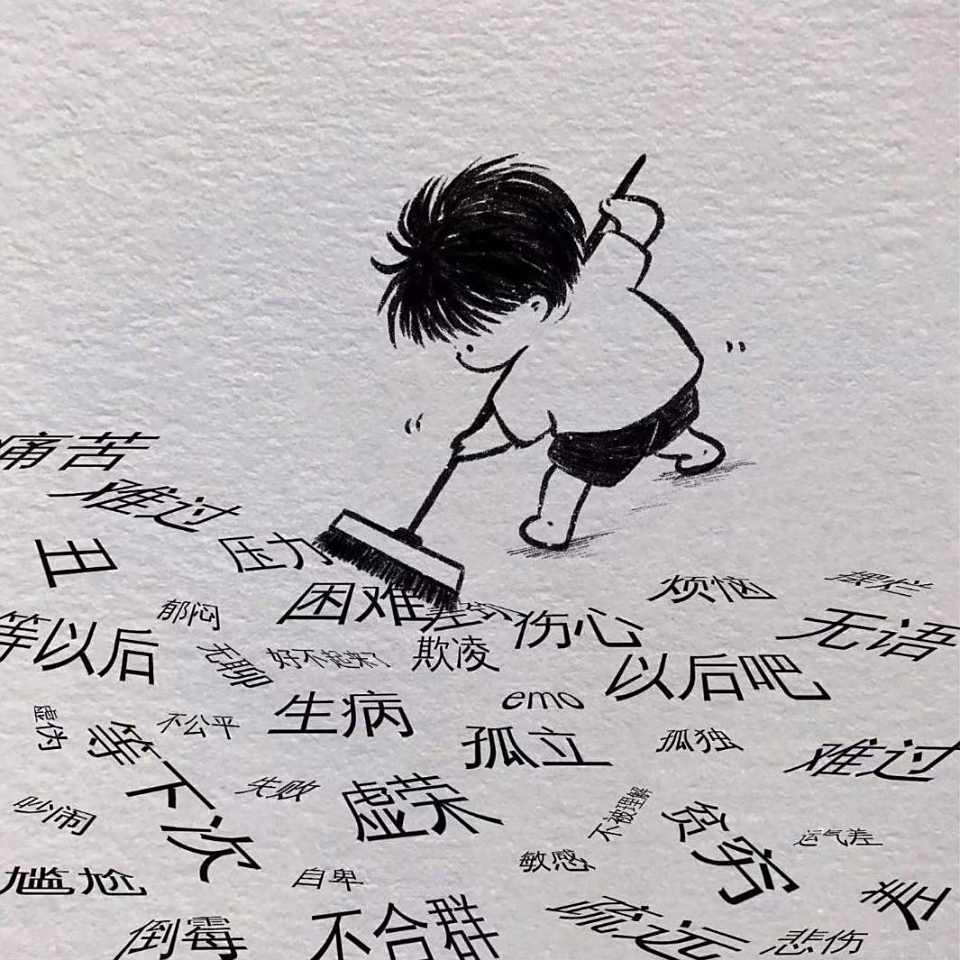 痛苦
难过
丑
压力
困难
烦恼
摆烂
郁闷
等以后
伤心
无语
无聊
好不起来了
欺凌
以后吧
生病
emo
虚伪
不公平
等下次
孤立
孤独
难过
失败
虚荣
不被理解
吵闹
贫穷
运气差
敏感
尴尬
自卑
差
倒霉
不合群
疏远
悲伤